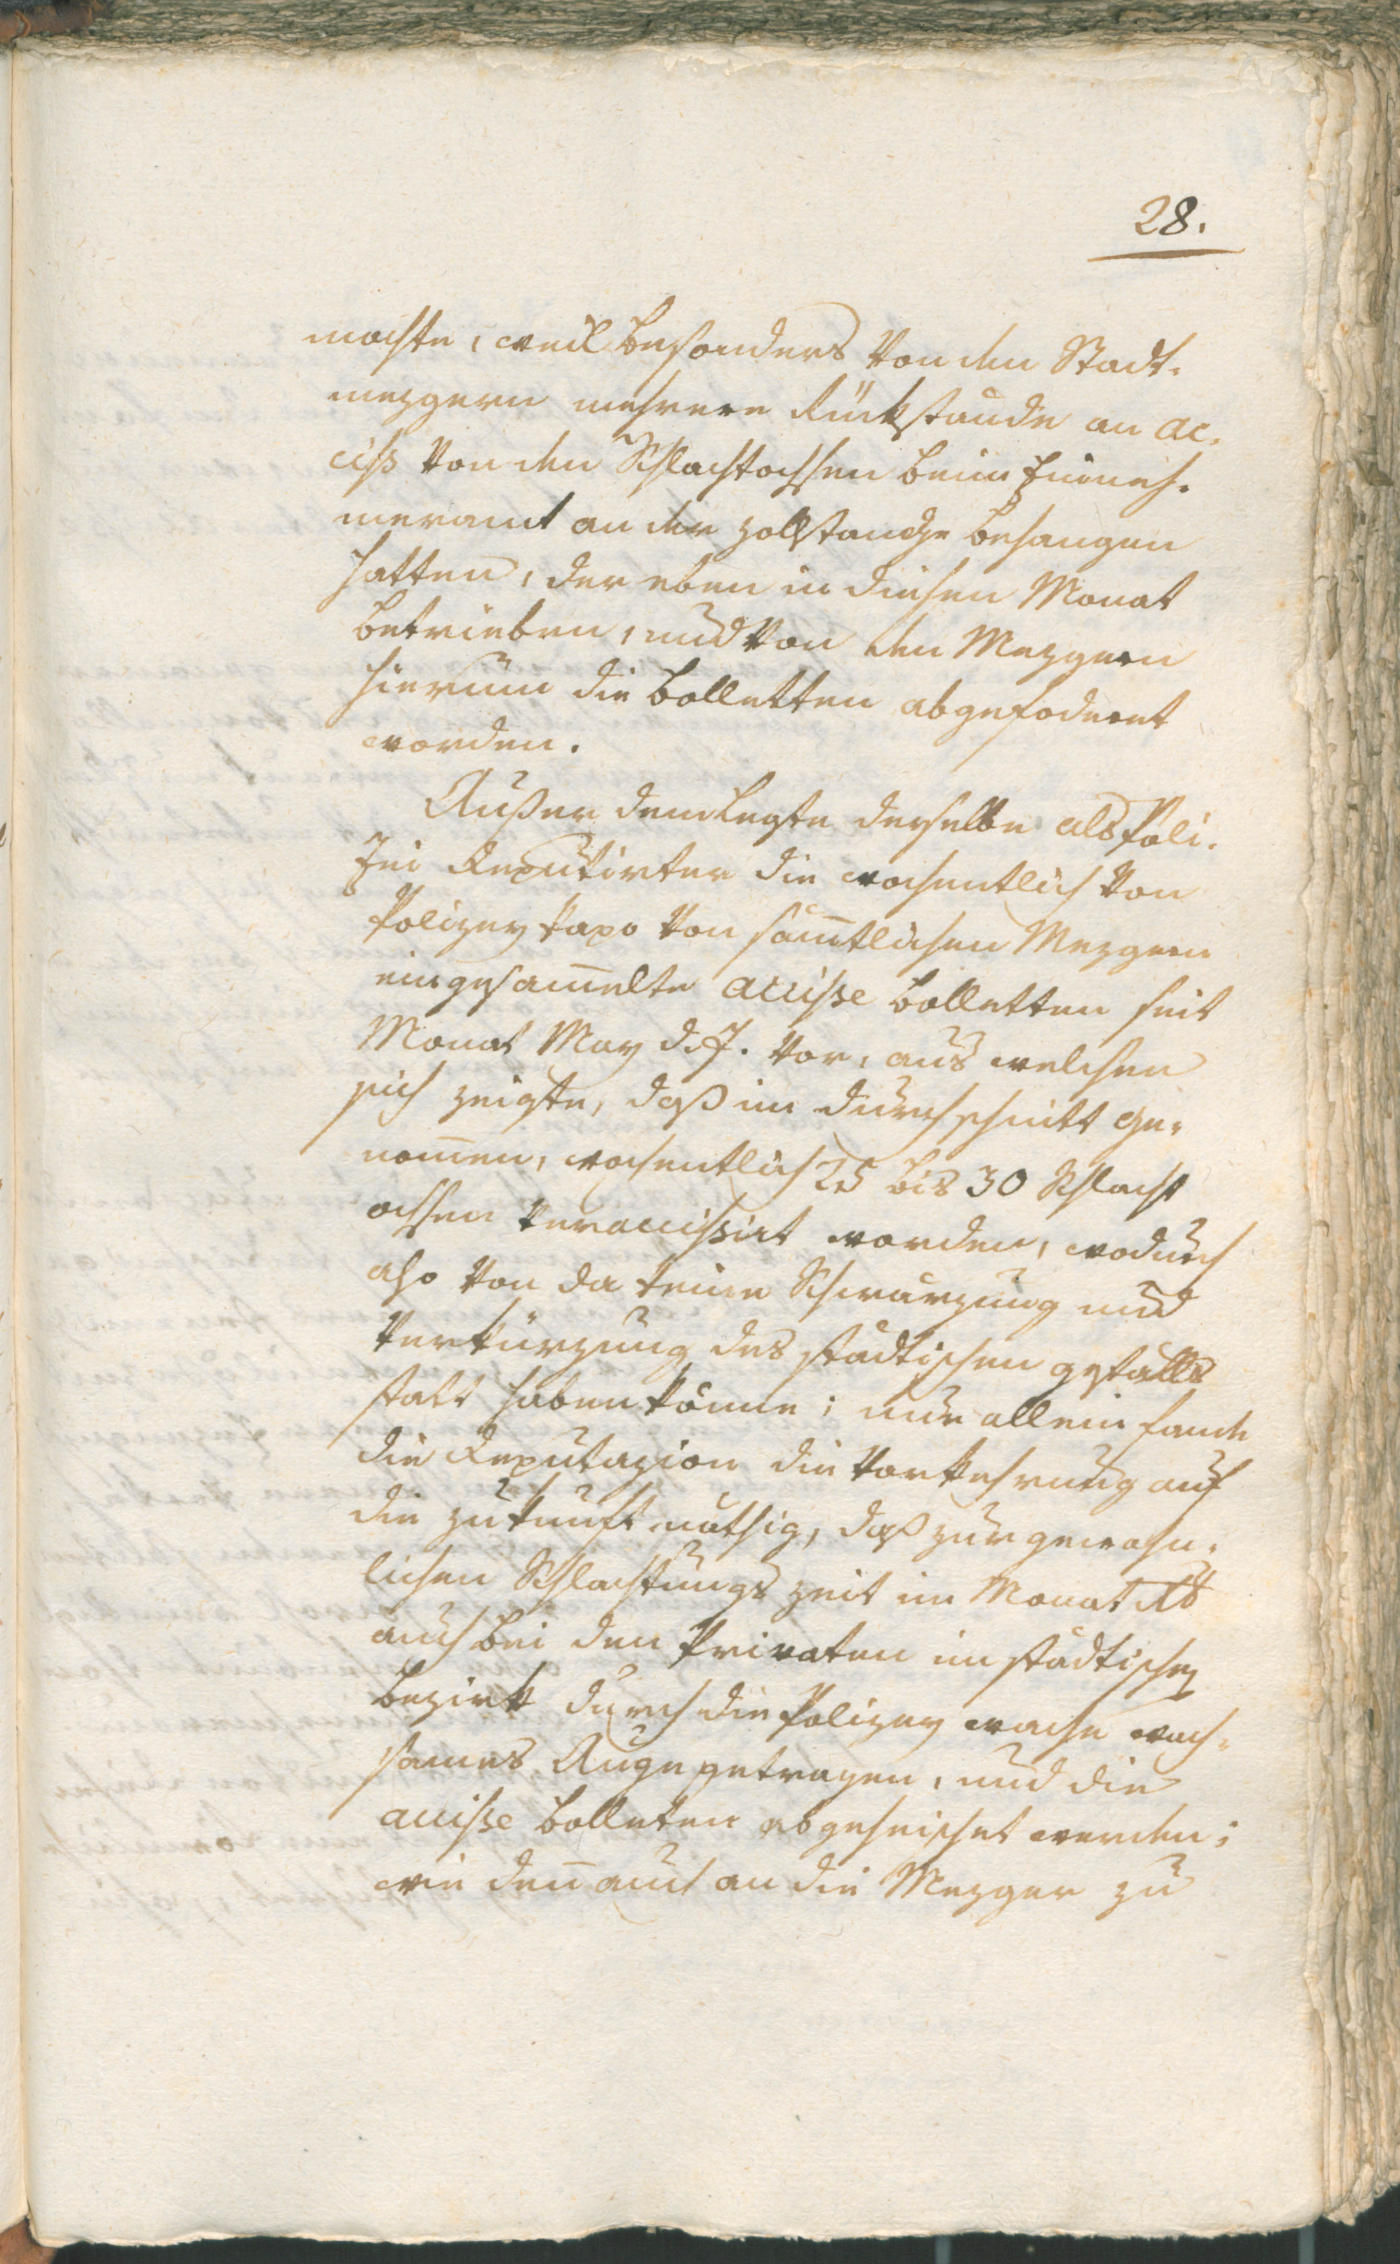 28.
machte, weil besonders von den Stadt-
mezgern mehrere Rückstände an ac-
ciß von den Schlachtochsen beim Einneh-
meramt an der Zollstange behangen
hatten, der eben in diesen Monat
betrieben, und von den Mezgern
hierum die Bolletten abgefoderet
worden.
Außer dem legte derselbe als Poli-
zei Deputirter die wochentlich von
Polizey Capo von sam̄tlichen Mezgern
eingesam̄elte accisse Bolletten seit
Monat May d. J. vor, aus welchen
sich zeigte, daß im durchschnitt ge-
nom̄en, wochentlich 25 bis 30 Schlacht
ochsen veraccissirt worden, wodurch
also von da keine Schwärzung und
Verkürzung des städtischen gefälls
statt haben könne; nur allein fande
die Deputazion die Vorkehrung auf
die zukunft nöthig, daß zur gewohn-
lichen Schlachtungs zeit im Monat
auch bei den Privaten im städtischen
bezirk durch die Polizey wache wach-
sames Auge getragen, und die
accisse Bolleten abgeheischet werden;
wie den̄ auch an die Mezger zu